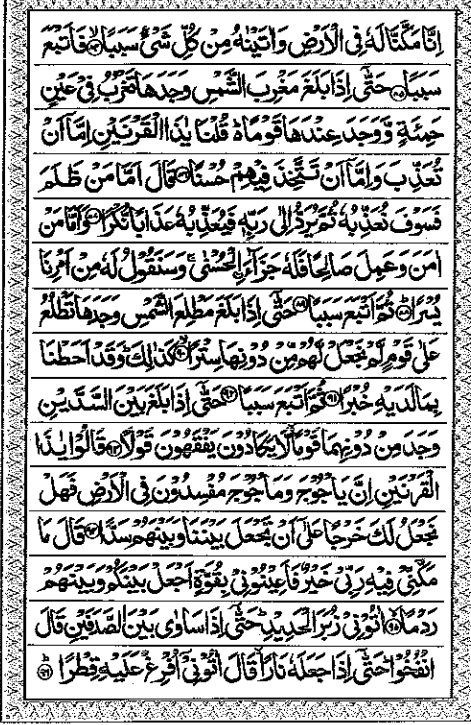 اِنَّا مَكَّنَّا لَهٗ فِی الْاَرْضِ وَاٰتَيْنٰهُ مِنْ كُلِّ شَیْءٍ سَبَبًا ۙ﴿۸۴﴾ فَاَتْبَعَ
سَبَبًا ﴿۸۵﴾ حَتّٰۤی اِذَا بَلَغَ مَغْرِبَ الشَّمْسِ وَجَدَهَا تَغْرُبُ فِیْ عَيْنٍ
حَمِئَةٍ وَّوَجَدَ عِنْدَهَا قَوْمًا ۬ؕ قُلْنَا يٰذَا الْقَرْنَيْنِ اِمَّاۤ اَنْ
تُعَذِّبَ وَاِمَّاۤ اَنْ تَتَّخِذَ فِيْهِمْ حُسْنًا ﴿۸۶﴾ قَالَ اَمَّا مَنْ ظَلَمَ
فَسَوْفَ نُعَذِّبُهٗ ثُمَّ يُرَدُّ اِلٰی رَبِّهٖ فَيُعَذِّبُهٗ عَذَابًا نُّكْرًا ﴿۸۷﴾ وَاَمَّا مَنْ
اٰمَنَ وَعَمِلَ صَالِحًا فَلَهٗ جَزَآءَ ۨالْحُسْنٰی ۚ وَسَنَقُوْلُ لَهٗ مِنْ اَمْرِنَا
يُسْرًا ؕ﴿۸۸﴾ ثُمَّ اَتْبَعَ سَبَبًا ﴿۸۹﴾ حَتّٰۤی اِذَا بَلَغَ مَطْلِعَ الشَّمْسِ وَجَدَهَا تَطْلُعُ
عَلٰی قَوْمٍ لَّمْ نَجْعَلْ لَّهُمْ مِّنْ دُوْنِهَا سِتْرًا ۙ﴿۹۰﴾ كَذٰلِكَ ؕ وَقَدْ اَحَطْنَا
بِمَا لَدَيْهِ خُبْرًا ﴿۹۱﴾ ثُمَّ اَتْبَعَ سَبَبًا ﴿۹۲﴾ حَتّٰۤی اِذَا بَلَغَ بَيْنَ السَّدَّيْنِ
وَجَدَ مِنْ دُوْنِهِمَا قَوْمًا ۙ لَّا يَكَادُوْنَ يَفْقَهُوْنَ قَوْلًا ﴿۹۳﴾ قَالُوْا يٰذَا
الْقَرْنَيْنِ اِنَّ يَاْجُوْجَ وَمَاْجُوْجَ مُفْسِدُوْنَ فِی الْاَرْضِ فَهَلْ
نَجْعَلُ لَكَ خَرْجًا عَلٰۤی اَنْ تَجْعَلَ بَيْنَنَا وَبَيْنَهُمْ سَدًّا ﴿۹۴﴾ قَالَ مَا
مَكَّنِّیْ فِيْهِ رَبِّیْ خَيْرٌ فَاَعِيْنُوْنِیْ بِقُوَّةٍ اَجْعَلْ بَيْنَكُمْ وَبَيْنَهُمْ
رَدْمًا ۙ﴿۹۵﴾ اٰتُوْنِیْ زُبَرَ الْحَدِيْدِ ؕ حَتّٰۤی اِذَا سَاوٰی بَيْنَ الصَّدَفَيْنِ قَالَ
انْفُخُوْا ؕ حَتّٰۤی اِذَا جَعَلَهٗ نَارًا ۙ قَالَ اٰتُوْنِیْۤ اُفْرِغْ عَلَيْهِ قِطْرًا ؕ﴿۹۶﴾